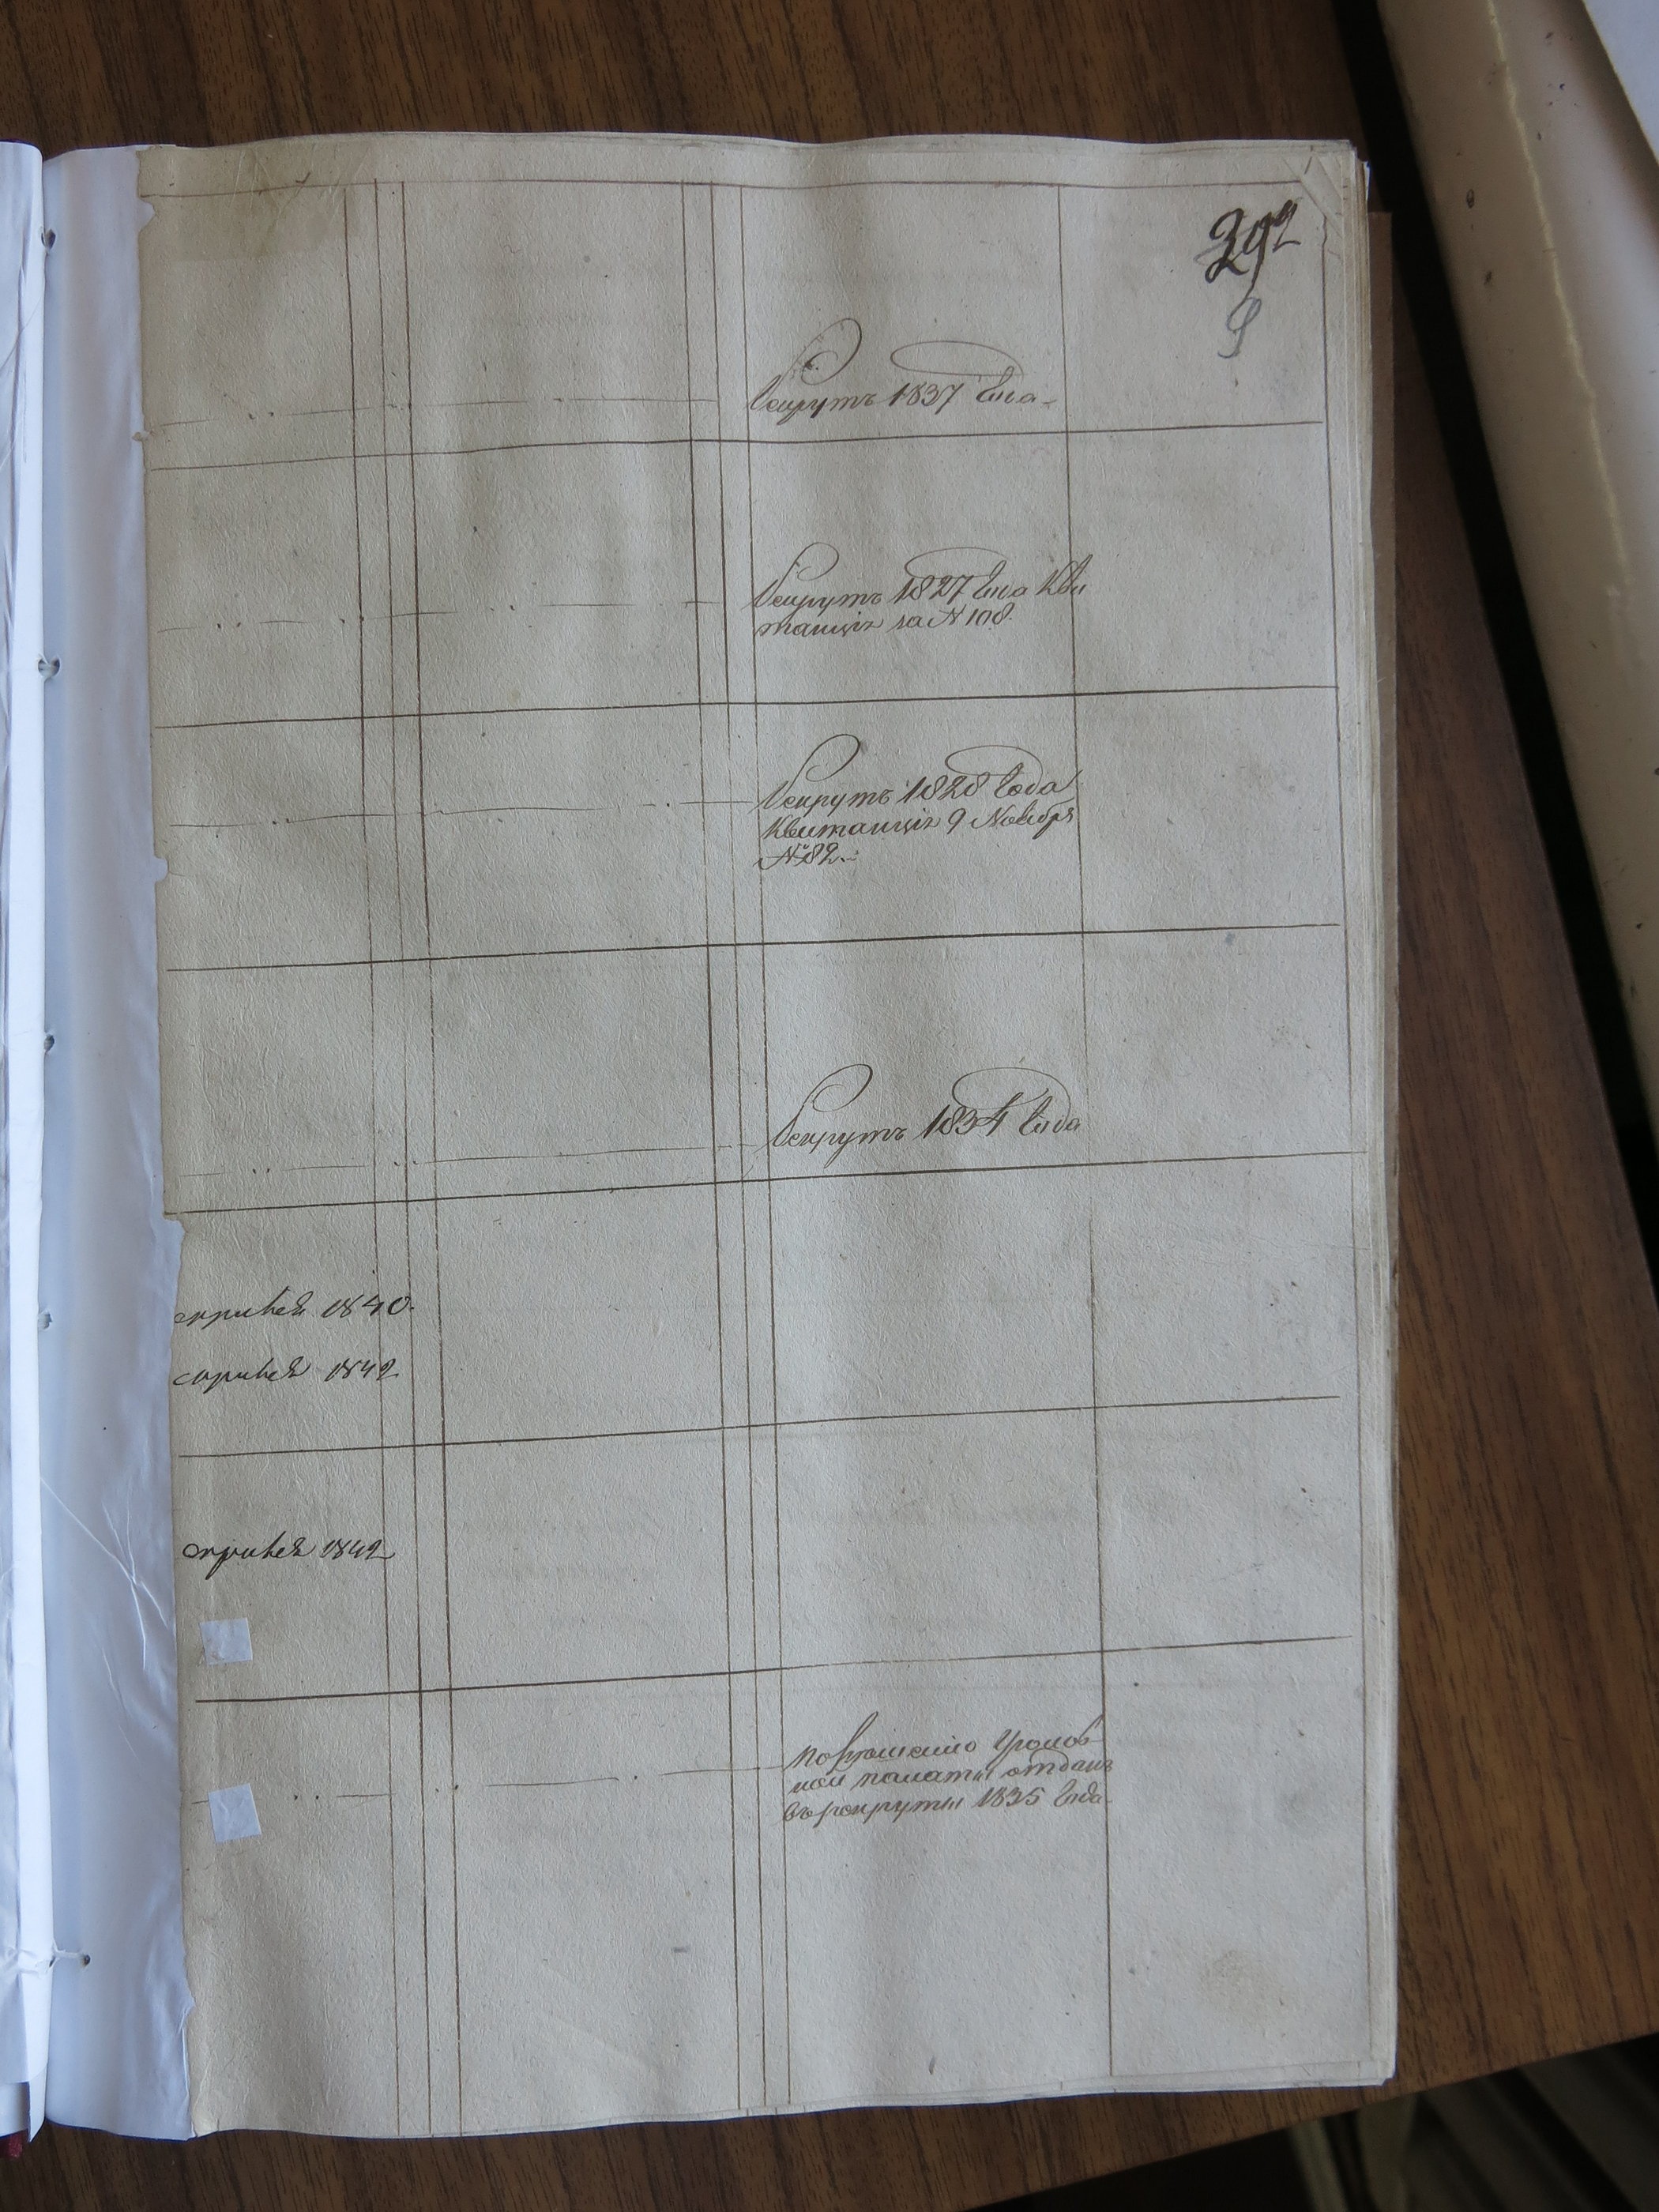 292
9
Рекрутъ 1837 Года
Рекрутъ 1827 Года Кви
танція за № 108.
Рекрутъ 1828 Года
Квитанція 9 Ноября
№ 82.
Рекрутъ 1834 Года
1840.
1842
1842
По решенію Уголов
ной палаты отданъ
въ рекруты 1835 Года.